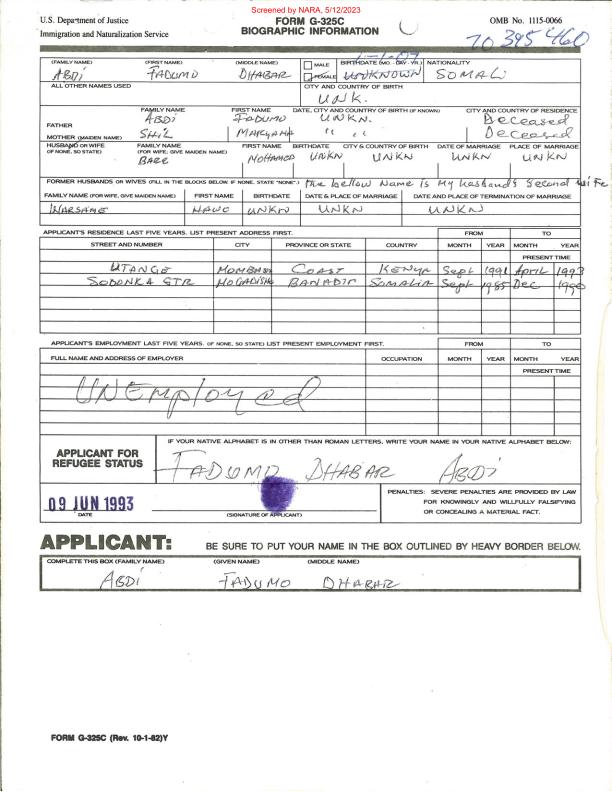 Screened by NARA, 5/12/2023
U.S. Department of Justice
Immigration and Naturalization Service
FORM G-325C
BIOGRAPHIC INFORMATION
OMB No. 1115-0066
70 395 460
(FAMILY NAME) (FIRST NAME) (MIDDLE NAME) MALE FEMALE BIRTHDATE (MO.-DAY-YR.) NATIONALITY
ABDI FADUMO DHABAR UNKNOWN SOMALI
ALL OTHER NAMES USED CITY AND COUNTRY OF BIRTH
UNK.
FAMILY NAME FIRST NAME DATE, CITY AND COUNTRY OF BIRTH (IF KNOWN) CITY AND COUNTRY OF RESIDENCE
FATHER ABDI FADUMO UNKN. Deceased
MOTHER (MAIDEN NAME) SHIL MARYAMA " " Deceased
HUSBAND OR WIFE (IF NONE, SO STATE) FAMILY NAME (FOR WIFE, GIVE MAIDEN NAME) FIRST NAME BIRTHDATE CITY & COUNTRY OF BIRTH DATE OF MARRIAGE PLACE OF MARRIAGE
BARE MOHAMED UNKN UNKN UNKN UNKN
FORMER HUSBANDS OR WIVES (FILL IN THE BLOCKS BELOW. IF NONE, STATE "NONE".) the bellow Name is My husband's Second wife
FAMILY NAME (FOR WIFE, GIVE MAIDEN NAME) FIRST NAME BIRTHDATE DATE & PLACE OF MARRIAGE DATE AND PLACE OF TERMINATION OF MARRIAGE
WARSAME HAWO UNKN UNKN UNKN
APPLICANT'S RESIDENCE LAST FIVE YEARS. LIST PRESENT ADDRESS FIRST. FROM TO
STREET AND NUMBER CITY PROVINCE OR STATE COUNTRY MONTH YEAR MONTH YEAR
PRESENT TIME
UTANGE MOMBASA COAST KENYA Sept 1991 April 1993
SODONKA STR MOGADISHU BANADIR SOMALIA Sept 1985 Dec 1990
APPLICANT'S EMPLOYMENT LAST FIVE YEARS. (IF NONE, SO STATE) LIST PRESENT EMPLOYMENT FIRST. FROM TO
FULL NAME AND ADDRESS OF EMPLOYER OCCUPATION MONTH YEAR MONTH YEAR
PRESENT TIME
UNEmployed
APPLICANT FOR REFUGEE STATUS
IF YOUR NATIVE ALPHABET IS IN OTHER THAN ROMAN LETTERS, WRITE YOUR NAME IN YOUR NATIVE ALPHABET BELOW:
FADUMO DHABAR ABDI
09 JUN 1993
DATE
(SIGNATURE OF APPLICANT)
PENALTIES: SEVERE PENALTIES ARE PROVIDED BY LAW
FOR KNOWINGLY AND WILLFULLY FALSIFYING
OR CONCEALING A MATERIAL FACT.
APPLICANT: BE SURE TO PUT YOUR NAME IN THE BOX OUTLINED BY HEAVY BORDER BELOW.
COMPLETE THIS BOX (FAMILY NAME) (GIVEN NAME) (MIDDLE NAME)
ABDI FADUMO DHABAR
FORM G-325C (Rev. 10-1-82)Y